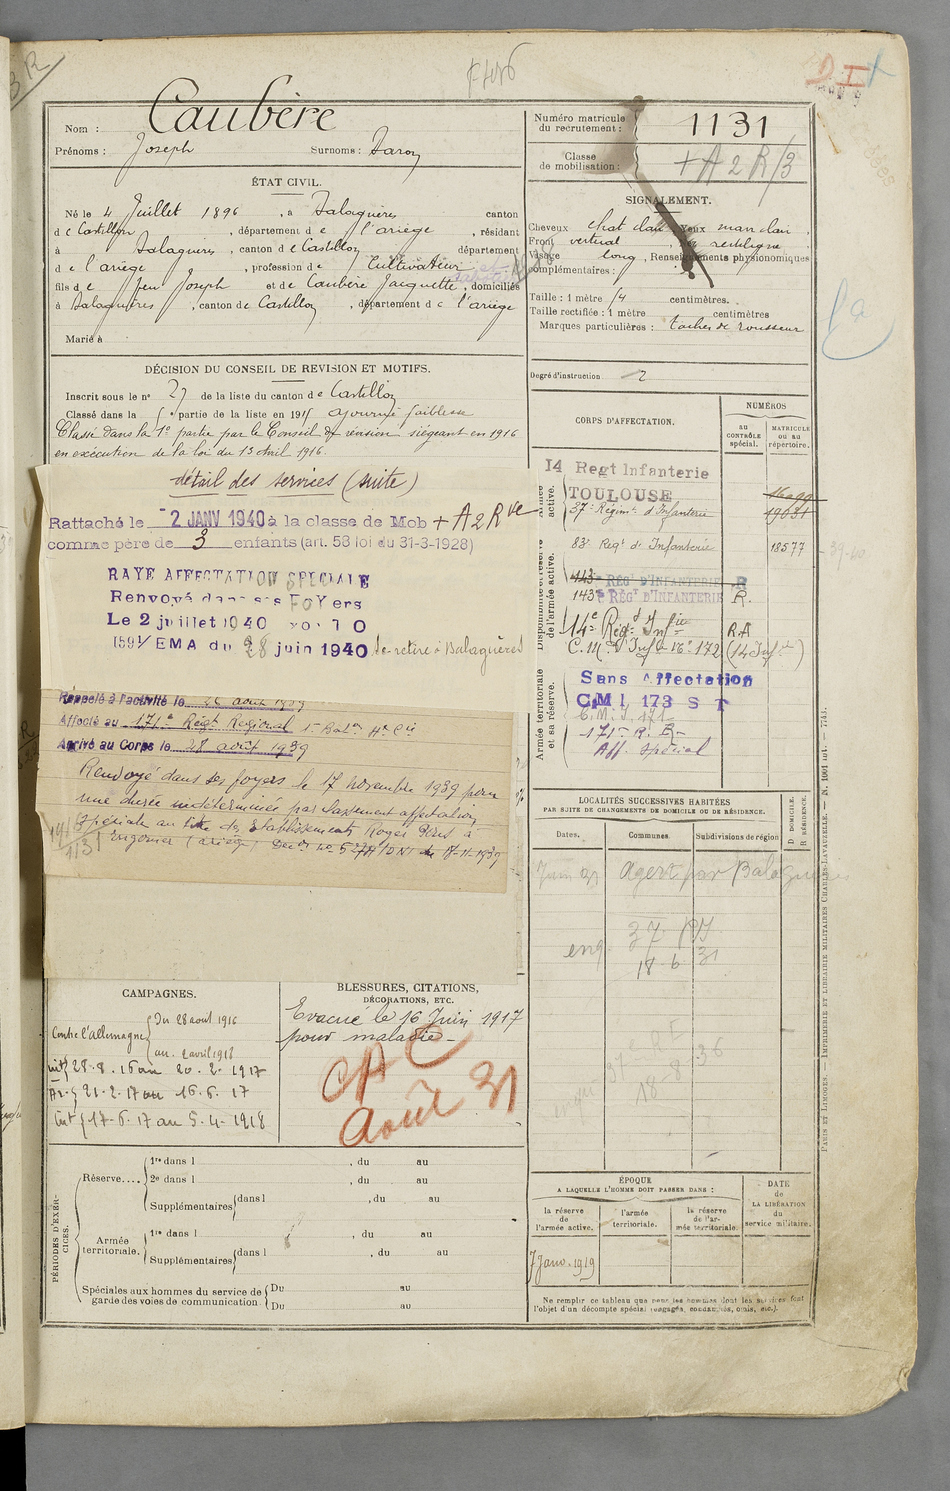 Nom : Caubère
Prénoms : Joseph Surnoms :
Numéro matricule du recrutement : 1131
Classe de mobilisation : + A 2 R/3
ÉTAT CIVIL.
Né le 4 Juillet 1896, à Balaguères canton
d e Castillon, département d e l'ariège, résidant
à Balaguères, canton d e Castillon département
d e l'ariège, profession d e Cultivateur
fils d e feu Joseph et de Caubère Jacquette, domiciliés
à Balaguères, canton de Castillon, département d e l'ariège
Marié à
SIGNALEMENT.
Cheveux chat clair Yeux mar clair
Front vertical rectiligne
Visage long, Renseignements physionomiques
complémentaires :
Taille : 1 mètre centimètres.
Taille rectifiée : 1 mètre centimètres
Marques particulières : taches de rousseur
Degré d'instruction 2
DÉCISION DU CONSEIL DE REVISION ET MOTIFS.
Inscrit sous le n° 27 de la liste du canton d e Castillon
Classé dans la 5e partie de la liste en 1915 ajourné faiblesse
Classé dans la 1e partie par le Conseil de révision siégeant en 1916
en exécution de la loi du 13 Avril 1916.
détail des services (suite)
Rattaché le -2 JANV 1940 à la classe de Mob + A 2 Rve
comme père de 3 enfants (art. 58 loi du 31-3-1928)
RAYE AFFECTATION SPECIALE
Renvoyé dans ses Foyers
Le 2 juillet 1940
EMA du 28 juin 1940 Se retire à Balaguères
Rappelé à l'activité le 26 août 1939
Affecté au 171e Régt Régional 1er Baton Hre Cie
Arrivé au Corps le 28 août 1939
Renvoyé dans ses foyers le 17 novembre 1939 pour
une durée indéterminée par classement affectation
spéciale au titre des Etablissements Roger à
(ariège) du 18-11-1939
CORPS D'AFFECTATION.
NUMÉROS
AU CONTRÔLE spécial.
MATRICULE OU AU répertoire.
Armée active.
14 Regt Infanterie
TOULOUSE
37e Régimt d'Infanterie 19031
Disponibilité et réserve de l'armée active.
83e Regt d'Infanterie 18577
143e REGt D'INFANTERIE R
143e REGt D'INFANTERIE R.
14e Régt d'Infie R.A
C.M. d'Inf n° 16e 172 (14 Infie)
Armée territoriale et sa réserve.
Sans Affectation
CMI 173 S T
C.M.I. 171
171e R. R-
Aff. spécial
LOCALITÉS SUCCESSIVES HABITÉES
PAR SUITE DE CHANGEMENTS DE DOMICILE OU DE RÉSIDENCE.
Dates. Communes. Subdivisions de région
D DOMICILE. R RÉSIDENCE.
Juin 31 Agert par Balaguères
enq
18-6 31
18-8-36
CAMPAGNES.
Contre l'allemagne
Du 28 août 1916
au 2 avril 1918
Int 28-8-16 au 20-2-1917
Ar. 21-2-17 au 16-6-17
Int 17-6-17 au 5-4-1918
BLESSURES, CITATIONS,
DÉCORATIONS, ETC.
Evacué le 16 Juin 1917
pour maladie-
CAC
Août 31
PÉRIODES D'EXERCICES.
Réserve....
1re dans l , du au
2e dans l , du au
Supplémentaires dans l , du au
Armée territoriale.
1re dans l , du au
Supplémentaires dans l , du au
Spéciales aux hommes du service de garde des voies de communication.
Du au
Du au
ÉPOQUE
A LAQUELLE L'HOMME DOIT PASSER DANS :
la réserve de l'armée active.
l'armée territoriale.
la réserve de l'armée territoriale.
DATE DE LA LIBÉRATION du service militaire.
7 Janv. 1919
Ne remplir ce tableau que pour les hommes dont les services font
l'objet d'un décompte spécial (engagés, condamnés, omis, etc.).
PARIS ET LIMOGES. — IMPRIMERIE ET LIBRAIRIE MILITAIRES CHARLES-LAVAUZELLE.